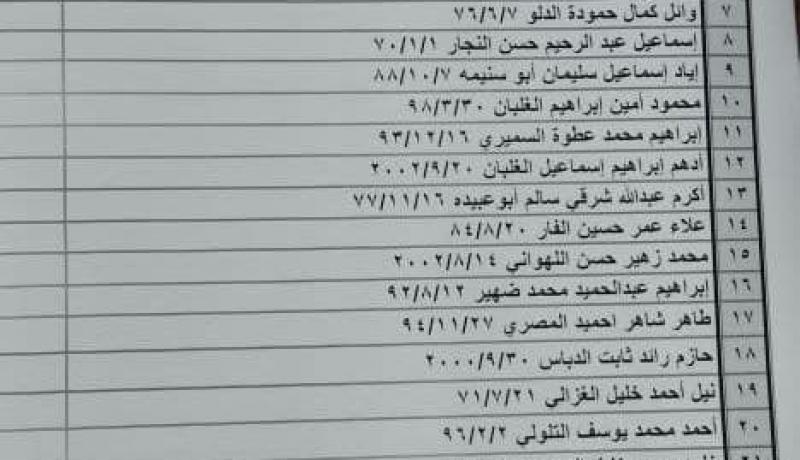 ٧ وائل كمال حمودة الدلو ٧٦/٦/٧
٨ إسماعيل عبد الرحيم حسن النجار ٧٠/١/١
٩ إياد إسماعيل سليمان أبو سنيمه ٨٨/١٠/٧
١٠ محمود أمين إبراهيم الغلبان ٩٨/٣/٣٠
١١ إبراهيم محمد عطوة السميري ٩٣/١٢/١٦
١٢ أدهم إبراهيم إسماعيل الغلبان ٢٠٠٢/٩/٢٠
١٣ أكرم عبدالله شرقي سالم أبوعبيده ٧٧/١١/١٦
١٤ علاء عمر حسين الفار ٨٤/٨/٢٠
١٥ محمد زهير حسن اللهواني ٢٠٠٢/٨/١٤
١٦ إبراهيم عبدالحميد محمد ضهير ٩٢/٨/١٢
١٧ طاهر شاهر احميد المصري ٩٤/١١/٢٧
١٨ حازم رائد ثابت الدباس ٢٠٠٠/٩/٣٠
١٩ نبل أحمد خليل الغزالي ٧١/٧/٢١
٢٠ أحمد محمد يوسف التلولي ٩٦/٢/٢